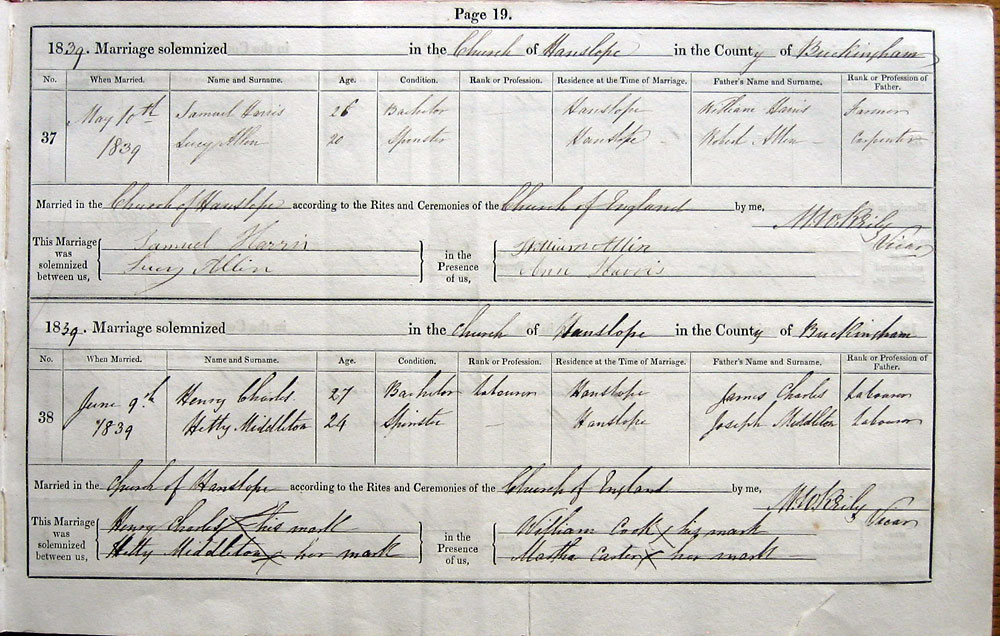 Page 19.
1839. Marriage solemnized in the Church of Hanslope in the County of Buckingham
No. When Married. Name and Surname. Age. Condition. Rank or Profession. Residence at the Time of Marriage. Father's Name and Surname. Rank or Profession of Father.
May 10th Samuel Harris 26 Bachelor Hanslope William Harris Farmer
37 1839 Lucy Allen 20 Spinster — Hanslope Robert Allen Carpenter
Married in the Church of Hanslope according to the Rites and Ceremonies of the Church of England by me,
Vicar
This Marriage was solemnized between us, Samuel Harris in the Presence of us, William Allin
Lucy Allin Ann Harris
1839. Marriage solemnized in the Church of Hanslope in the County of Buckingham
No. When Married. Name and Surname. Age. Condition. Rank or Profession. Residence at the Time of Marriage. Father's Name and Surname. Rank or Profession of Father.
June 9th Henry Charles 27 Bachelor Labourer Hanslope James Charles Labourer
38 1839 Hetty Middleton 24 Spinster — Hanslope Joseph Middleton Labourer
Married in the Church of Hanslope according to the Rites and Ceremonies of the Church of England by me,
Vicar
This Marriage was solemnized between us, Henry Charles X his mark in the Presence of us, William Cook X his mark
Hetty Middleton X her mark Martha Carter X her mark